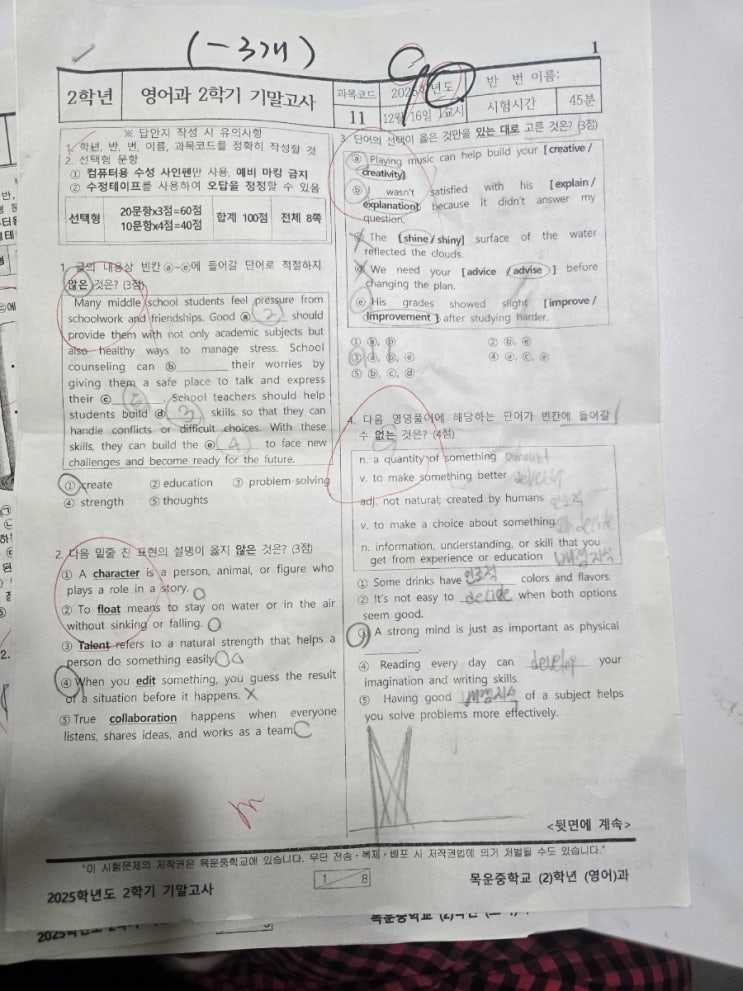 (-3개)
90
1
2학년
영어과 2학기 기말고사
과목코드
11
2025학년도
12월 16일 1교시
반 번 이름:
시험시간
45분
※ 답안지 작성 시 유의사항
1. 학년, 반, 번, 이름, 과목코드를 정확히 작성할 것
2. 선택형 문항
① 컴퓨터용 수성 사인펜만 사용, 예비 마킹 금지
② 수정테이프를 사용하여 오답을 정정할 수 있음
선택형
20문항x3점=60점
10문항x4점=40점
합계 100점
전체 8쪽
1. 글의 내용상 빈칸 ⓐ~ⓔ에 들어갈 단어로 적절하지
않은 것은? (3점)
Many middle school students feel pressure from
schoolwork and friendships. Good ⓐ 2 should
provide them with not only academic subjects but
also healthy ways to manage stress. School
counseling can ⓑ their worries by
giving them a safe place to talk and express
their ⓒ 5. School teachers should help
students build ⓓ 3 skills so that they can
handle conflicts or difficult choices. With these
skills, they can build the ⓔ 4 to face new
challenges and become ready for the future.
① create ② education ③ problem-solving
④ strength ⑤ thoughts
2. 다음 밑줄 친 표현의 설명이 옳지 않은 것은? (3점)
① A character is a person, animal, or figure who
plays a role in a story. O
② To float means to stay on water or in the air
without sinking or falling. O
③ Talent refers to a natural strength that helps a
person do something easily.
④ When you edit something, you guess the result
of a situation before it happens. X
⑤ True collaboration happens when everyone
listens, shares ideas, and works as a team.
3. 단어의 선택이 옳은 것만을 있는 대로 고른 것은? (3점)
ⓐ Playing music can help build your [creative /
creativity].
ⓑ I wasn't satisfied with his [explain /
explanation] because it didn't answer my
question.
ⓒ The [shine / shiny] surface of the water
reflected the clouds.
ⓓ We need your [advice / advise] before
changing the plan.
ⓔ His grades showed slight [improve /
improvement] after studying harder.
① ⓐ, ⓑ ② ⓑ, ⓔ
③ ⓐ, ⓑ, ⓔ ④ ⓐ, ⓒ, ⓔ
⑤ ⓑ, ⓒ, ⓓ
4. 다음 영영풀이에 해당하는 단어가 빈칸에 들어갈
수 없는 것은? (4점)
n. a quantity of something amount
v. to make something better develop
adj. not natural; created by humans 인조적
v. to make a choice about something decide
n. information, understanding, or skill that you
get from experience or education 배경지식
① Some drinks have 인조적 colors and flavors.
② It's not easy to decide when both options
seem good.
③ A strong mind is just as important as physical
④ Reading every day can develop your
imagination and writing skills.
⑤ Having good 배경지식 of a subject helps
you solve problems more effectively.
<뒷면에 계속>
"이 시험문제의 저작권은 목운중학교에 있습니다. 무단 전송·복제·배포 시 저작권법에 의거 처벌될 수도 있습니다."
2025학년도 2학기 기말고사
1 8
목운중학교 (2)학년 (영어)과